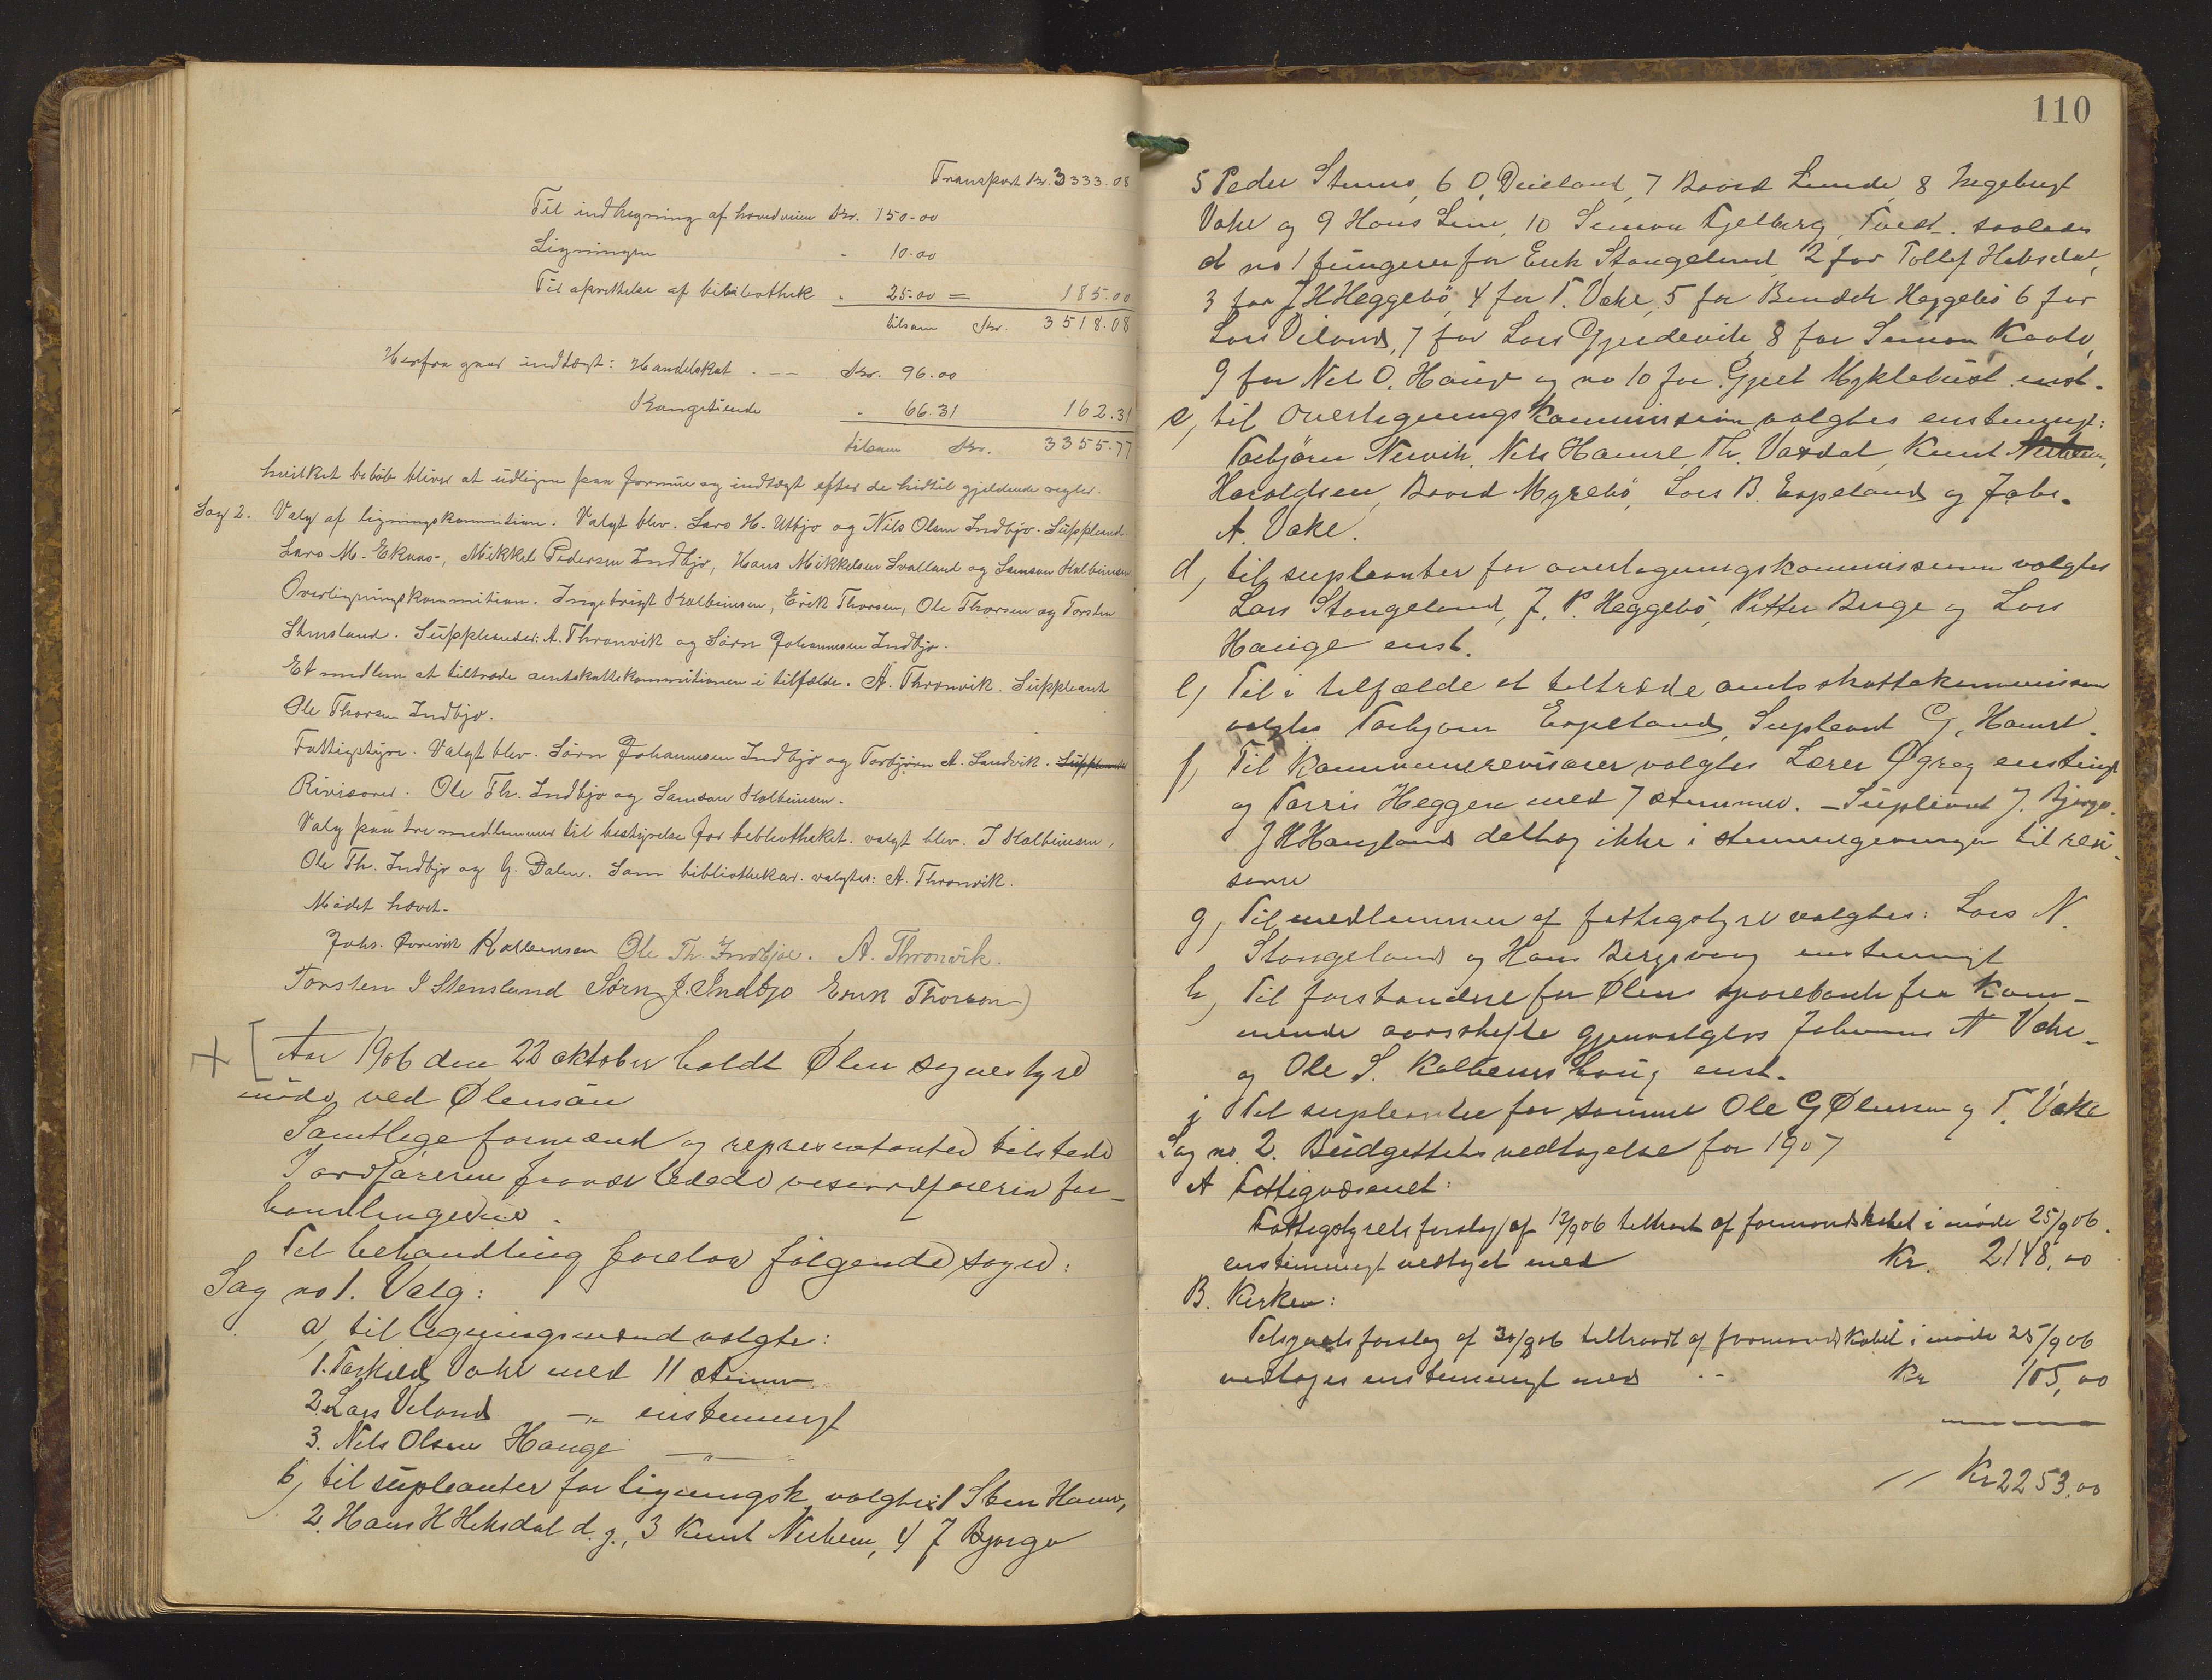 Transport Kr. 3333.08
Til indhegning af hovedveien Kr. 150.00
Ligningen " 10.00
Til oprettelse af bibliothek " 25.00 = 185.00
tilsam Kr. 3518.08
Herfra gaar indtægt: Handelskat . -- Kr. 96.00
Kongetiende " 66.31 162.31
tilsam Kr. 3355.77
hvilket beløb bliver at udligne paa formue og indtægt efter de hidtil gjældende regler.
Sag 2. Valg af ligningskommition. Valgt blev. Lars H. Utbjo og Nils Olsen Indbjo. Suppleand
Lars M. Ekaas, Mikkel Pedersen Indbjo, Hans Mikkelsen Svolland og Samson Kolbeinsen
Overligningskommition. Ingebrigt Kolbeinsen, Erik Thorsen, Ole Thorsen og Torsten
Stensland. Suppleander: A. Thronvik og Sørn Johannesen Indbjo.
Et medlem at tiltræde amtskattekommitionen i tilfælde. A. Thronvik. Suppleant
Ole Thorsen Indbjo.
Fattigstyre. Valgt blev. Sørn Johannesen Indbjo og Torbjørn A. Sandvik.
Rivisorer. Ole Th. Indbjo og Samson Kolbeinsen.
Valg paa tre medlemmer til bestyrelse for bebliotheket. valgt blev. I Kolbeinsen,
Ole Th. Indbjo og G. Dalen. Som bibliothekar valgtes: A. Thronvik.
Mødet hævet.
Johs. Kolbeinsen Ole Th. Indbjoe. A. Thronvik.
Torsten I Stensland Sørn J. Indbjo Erik Thorson
Aar 1906 den 22 oktober holdt Ølen sognestyre
møde ved Ølensøen
Samtlige formænd og representanter tilstede
I ordførerens fravær ledede viseordføreren for-
handlingerne.
Til behandling forelaa følgende sager:
Sag no 1. Valg:
a, til ligningsmænd valgte:
1. Torkild Vake med 11 stemmer
2. Lars Veland -"- enstemmigt
3. Nils Olsen Hauge -"-
b, til supleanter for ligningsk. valgtes: 1 Sten Hamre,
2. Hans H Heksdal d. y., 3 Knut Nerheim, 4 J Bjorge
110
5 Peder Stumo, 6 O, Dueland, 7 Baard Lunde, 8 Ingebrigt
Vake og 9 Hans Lunde, 10 Simon Fjelberg, saaledes
at no 1 fungerer for Erik Stangeland 2 for Tollef Heksdal,
3 for J H Heggebø, 4 for T. Vake, 5 for Bendik Heggebø 6 for
Lars Veland, 7 for Lars Gjerdevik, 8 for Simon
9 for Nils O. Hauge og no 10 for Gjert Myklebust enst.
c, til Overligningskommissionen valgtes enstemmigt:
Torbjørn Nervik, Nils Hamre, Th. Vaxdal, Knut
Haraldsen, Baard Myrebø, Lars B. Espeland og Johs.
A. Vake.
d, til supleanter for overligningskommissionen valgtes
Lars Stangeland, J. P. Heggebø, Petter Berge og Lars
Hauge enst.
e, Til i tilfælde at tiltræde amtsskattekommissionen
valgtes Torbjørn Espeland, Supleant G. Hamre.
f, Til Kommunerevisorer valgtes Lærer Øgreg enstemt
og Torris Heggen med 7 stemmer. - Supleant J. Bjorge.
J H Haugland deltog ikke i stemmegivningen til revi-
sorer
g, Til medlemmer af fattigstyre valgtes: Lars N.
Stangeland og Hans Bergsvaag enstemmigt
h, Til forstandere for Ølens sparebank fra kom-
mende aarsskifte gjenvalgtes Johannes A Vake
og Ole S. Kolbeinshaug enst.
j Til supleanter for samme Ole G Ølensen og T. Vake
Sag no 2. Budgettets vedtagelse for 1907
A Fattigvæsenet:
Fattigstyrets forslag af 12/9 06 tiltraadt af formandskabet i møde 25/9 06.
enstemmigt vedtaget med Kr. 2148,00
B. Kirken:
Tilsynets forslag af 30/8 06 tiltraadt af formandskabet i møde 25/9 06
vedtages enstemmigt med .- Kr 105,00
Kr 2253,00